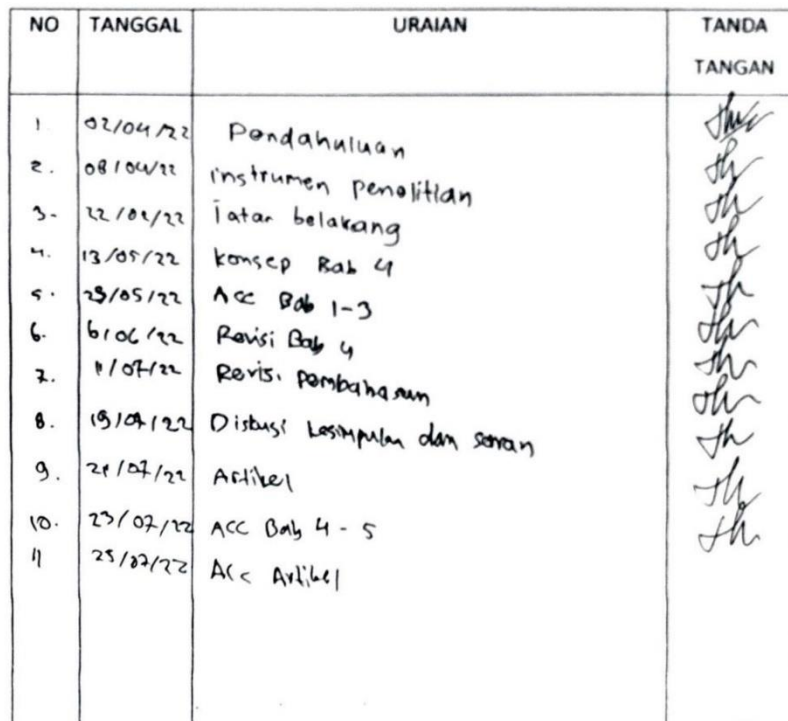 NO TANGGAL URAIAN TANDA TANGAN
1. 02/04/22 Pendahuluan
2. 08/04/22 instrumen penelitian
3. 22/04/22 latar belakang
4. 13/05/22 konsep Bab 4
5. 23/05/22 Acc Bab 1-3
6. 6/06/22 Revisi Bab 4
7. 11/07/22 Revisi pembahasan
8. 19/07/22 Diskusi kesimpulan dan saran
9. 21/07/22 Artikel
10. 23/07/22 ACC Bab 4-5
11 25/07/22 Acc Artikel